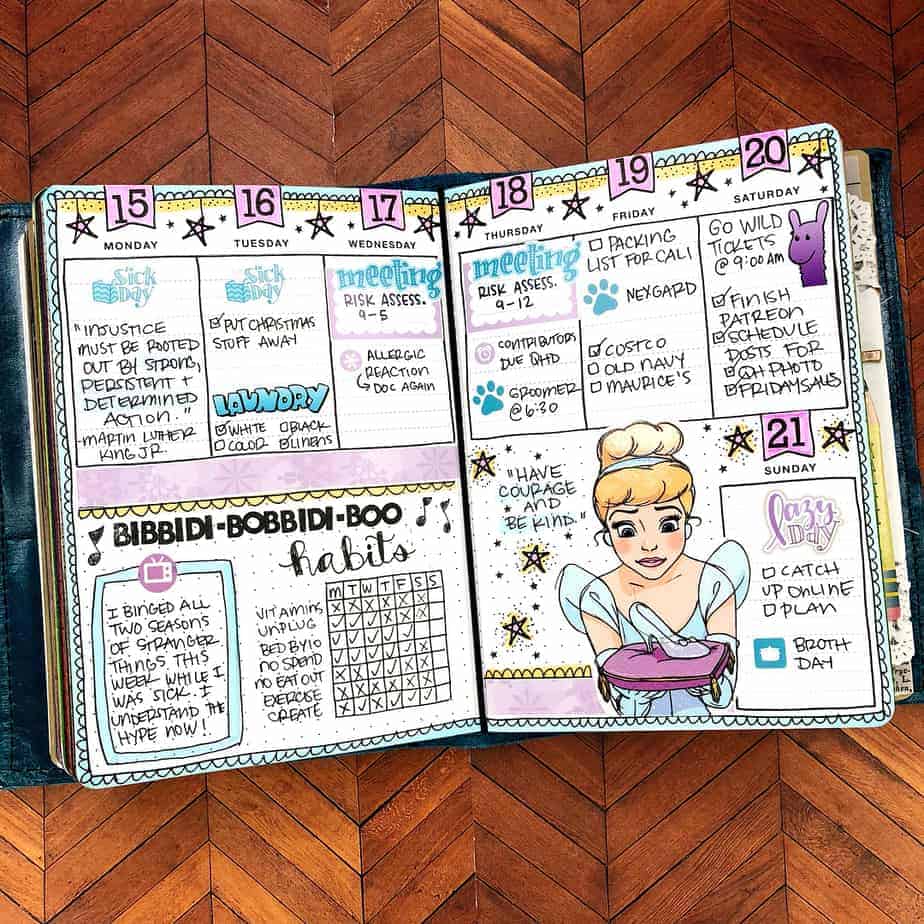 15
MONDAY
Sick
Day
"INJUSTICE
MUST BE ROOTED
OUT BY STRONG,
PERSISTENT +
DETERMINED
ACTION."
-MARTIN LUTHER
KING JR.
16
TUESDAY
Sick
Day
PUT CHRISTMAS
STUFF AWAY
LAUNDRY
WHITE BLACK
COLOR LINENS
17
WEDNESDAY
meeting
RISK ASSESS.
9-5
ALLERGIC
REACTION
DOC AGAIN
BIBBIDI-BOBBIDI-BOO
habits
I BINGED ALL
TWO SEASONS
OF STRANGER
THINGS THIS
WEEK WHILE I
WAS SICK. I
UNDERSTAND THE
HYPE NOW!
M T W T F S S
VITAMINS
UNPLUG
BED BY 10
NO SPEND
NO EAT OUT
EXERCISE
CREATE
18
THURSDAY
meeting
RISK ASSESS.
9-12
CONTRIBUTORS
DUE QHD
GROOMER
@ 6:30
19
FRIDAY
PACKING
LIST FOR CALI
NEXGARD
COSTCO
OLD NAVY
MAURICE'S
20
SATURDAY
GO WILD
TICKETS
@ 9:00 AM
FINISH
PATREON
SCHEDULE
POSTS FOR
QH PHOTO
"HAVE
COURAGE
AND
BE KIND."
21
SUNDAY
lazy
Day
CATCH
UP ONLINE
PLAN
BROTH
DAY